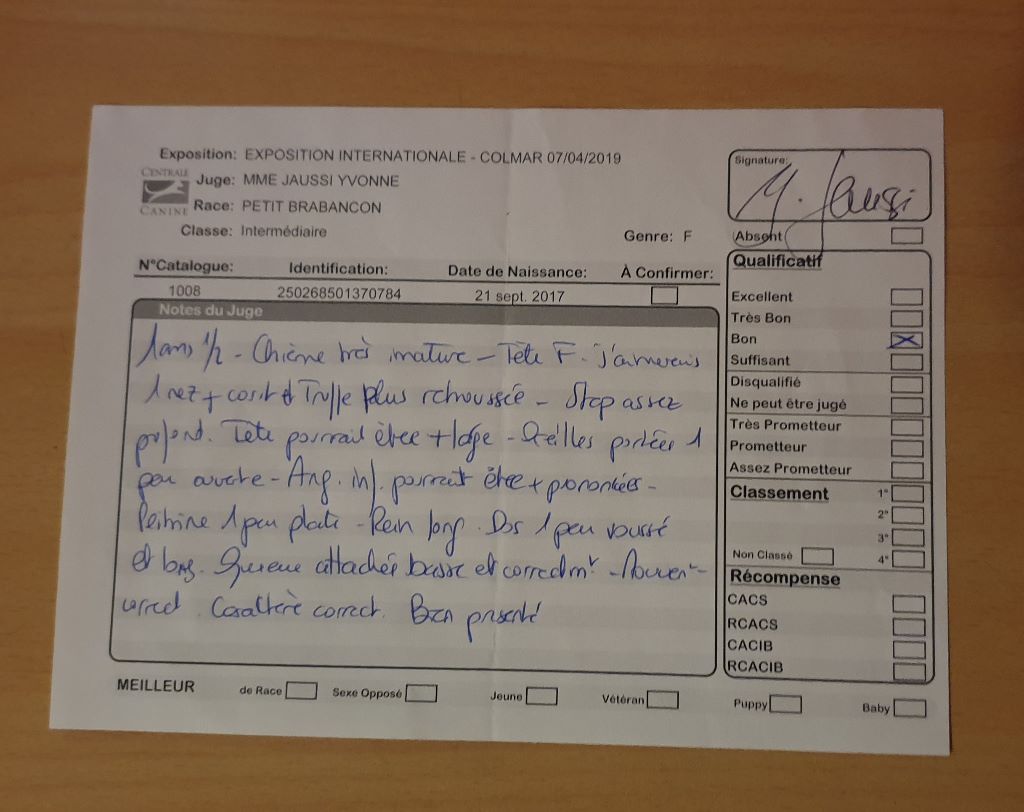 Exposition: EXPOSITION INTERNATIONALE - COLMAR 07/04/2019
CENTRALE
CANINE
Juge: MME JAUSSI YVONNE
Race: PETIT BRABANCON
Classe: Intermédiaire
Genre: F
N°Catalogue: Identification: Date de Naissance: À Confirmer:
1008 250268501370784 21 sept. 2017
Notes du Juge
1 ans 1/2 - Chienne très mature - Tête F. j'aimerais
1 nez + court et Truffe plus rehaussée - Stop assez
profond. Tête pourrait être + large - Oreilles portées 1
peu ouverte - Ang. inf. pourrait être + prononcées -
Poitrine 1 peu plate - Rein long. Dos 1 peu voussé
et bas. Queue attachée basse et correctmt - Mouvent -
correct. Caractère correct. Bien présenté
Signature:
Y. Jaussi
Absent
Qualificatif
Excellent
Très Bon
Bon X
Suffisant
Disqualifié
Ne peut être jugé
Très Prometteur
Prometteur
Assez Prometteur
Classement 1°
2°
3°
Non Classé 4°
Récompense
CACS
RCACS
CACIB
RCACIB
MEILLEUR de Race Sexe Opposé Jeune Vétéran Puppy Baby